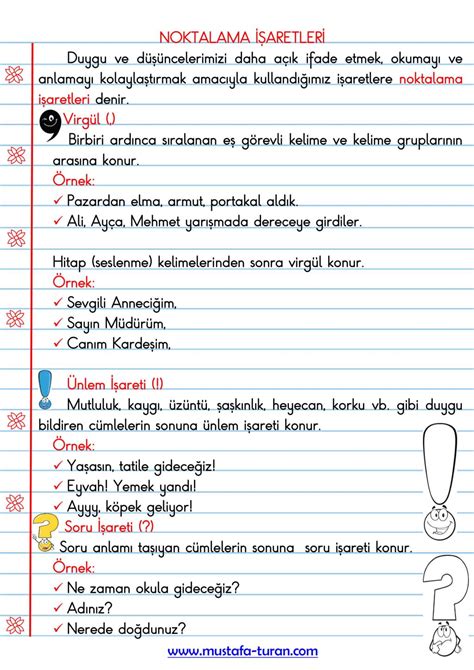 NOKTALAMA İŞARETLERİ
Duygu ve düşüncelerimizi daha açık ifade etmek, okumayı ve
anlamayı kolaylaştırmak amacıyla kullandığımız işaretlere noktalama
işaretleri denir.
Virgül (,)
Birbiri ardınca sıralanan eş görevli kelime ve kelime gruplarının
arasına konur.
Örnek:
✓ Pazardan elma, armut, portakal aldık.
✓ Ali, Ayça, Mehmet yarışmada dereceye girdiler.
Hitap (seslenme) kelimelerinden sonra virgül konur.
Örnek:
✓ Sevgili Anneciğim,
✓ Sayın Müdürüm,
✓ Canım Kardeşim,
Ünlem İşareti (!)
Mutluluk, kaygı, üzüntü, şaşkınlık, heyecan, korku vb. gibi duygu
bildiren cümlelerin sonuna ünlem işareti konur.
Örnek:
✓ Yaşasın, tatile gideceğiz!
✓ Eyvah! Yemek yandı!
✓ Ayyy, köpek geliyor!
Soru İşareti (?)
Soru anlamı taşıyan cümlelerin sonuna soru işareti konur.
Örnek:
✓ Ne zaman okula gideceğiz?
✓ Adınız?
✓ Nerede doğdunuz?
www.mustafa-turan.com